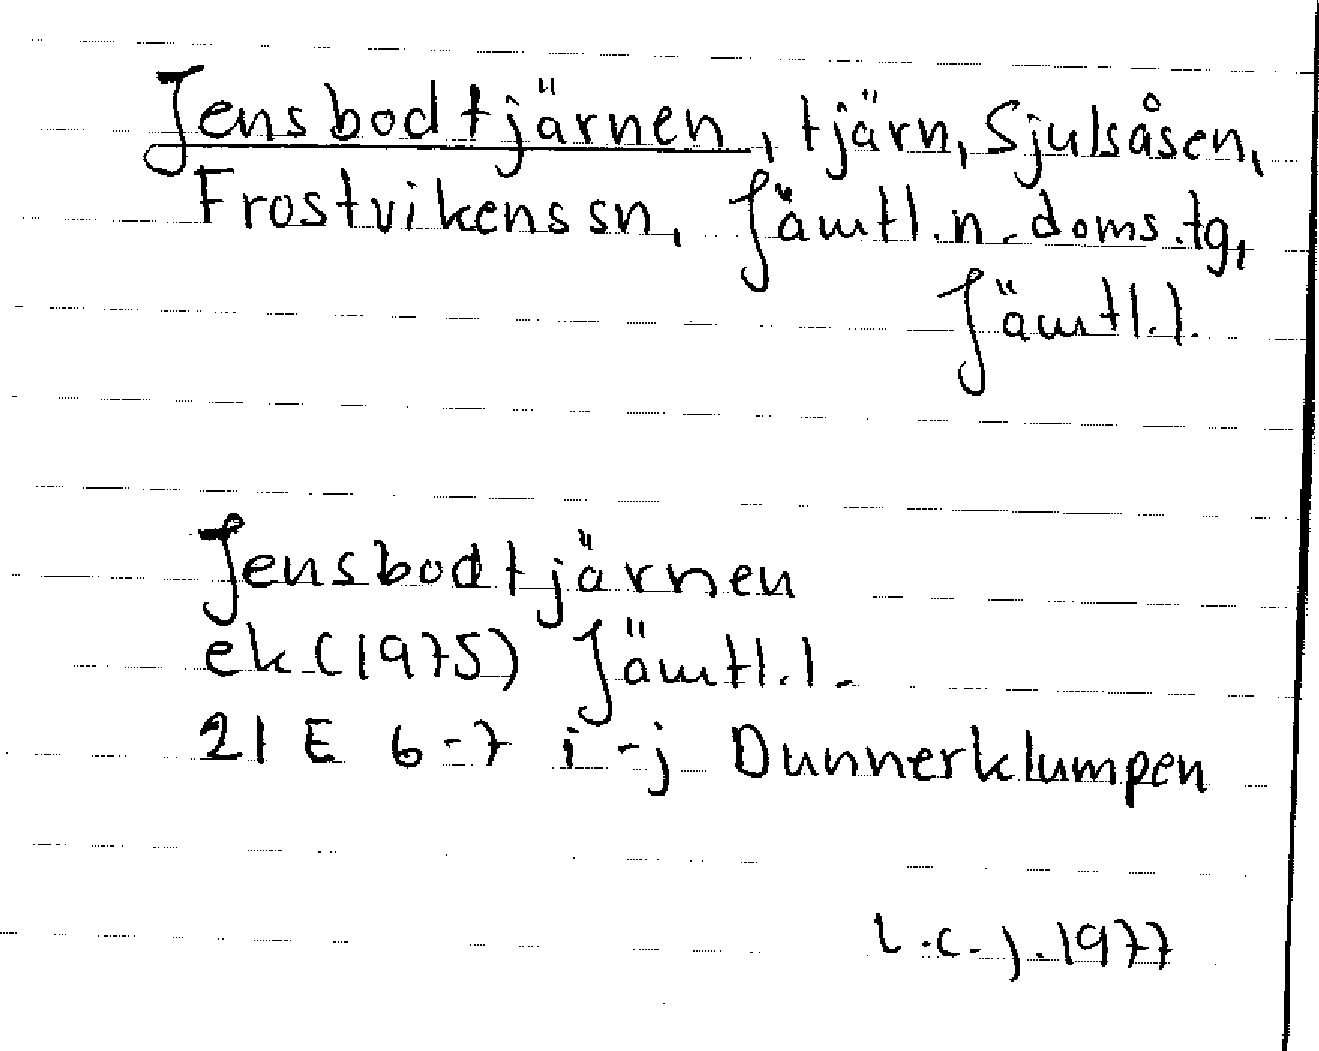 Jensbodtjärnen, tjärn, Sjulsåsen,
Frostvikens sn, Jämtl. n. doms.tg,
Jämtl.l.
Jensbodtjärnen
ek (1975) Jämtl.l.
21 E 6-7 i-j Dunnerklumpen
l.c.j. 1977